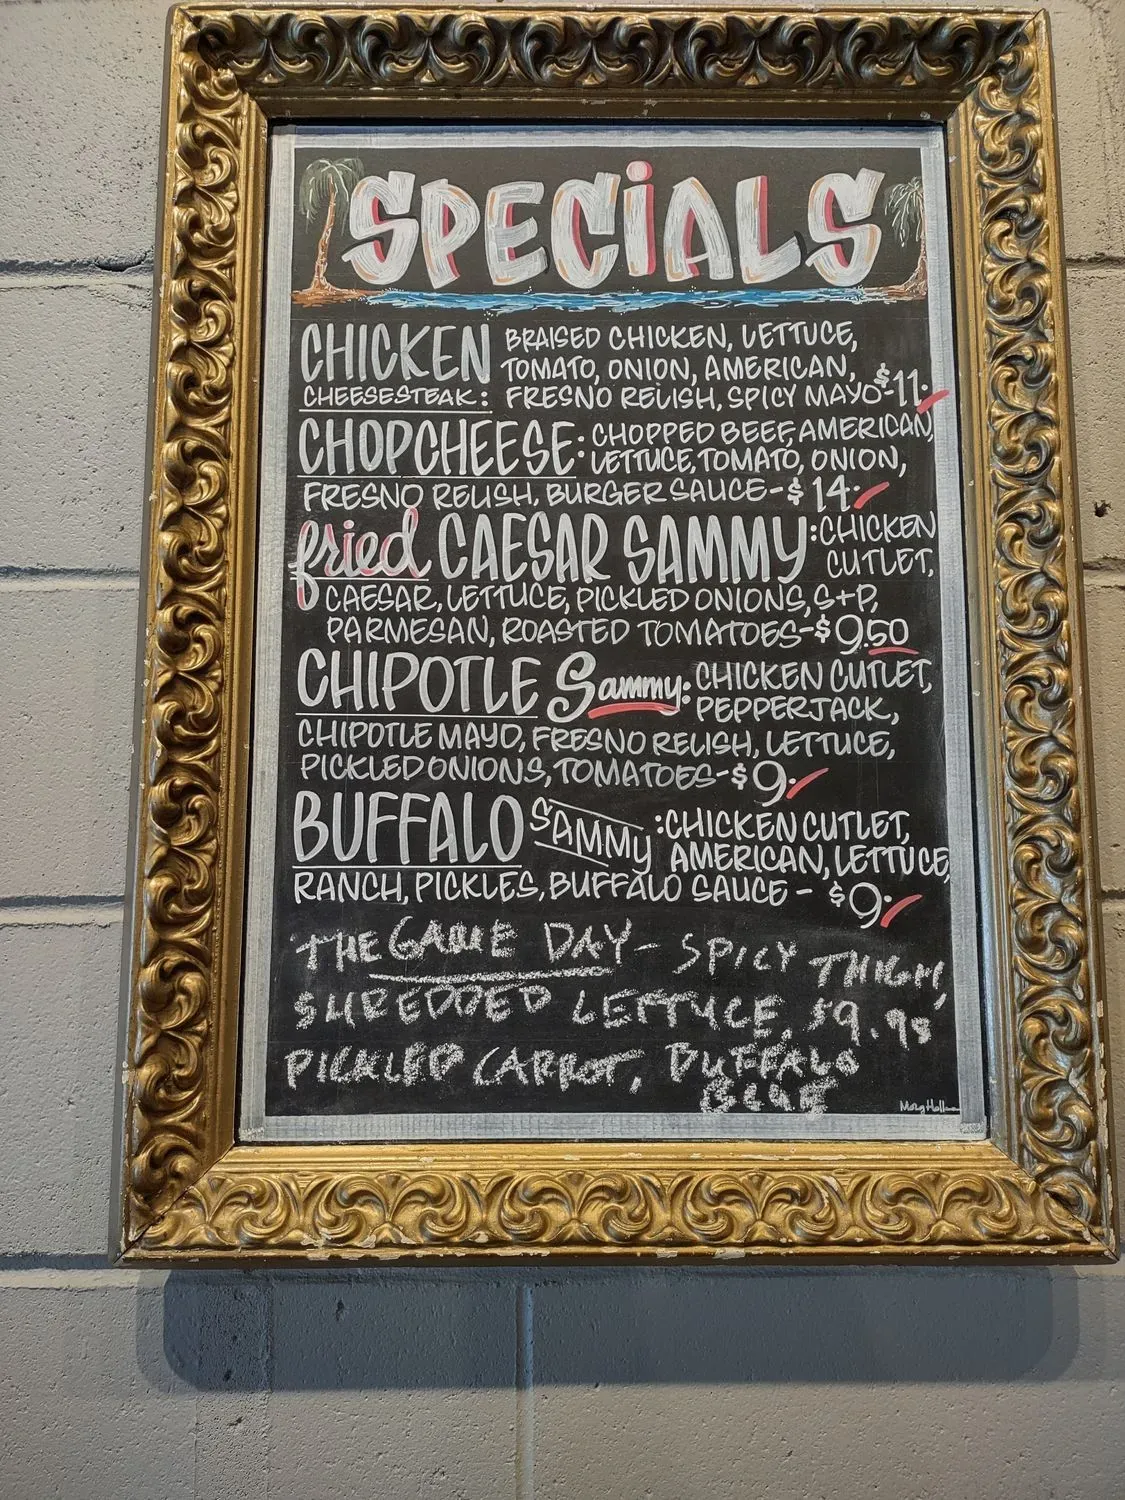 SPECiALS
CHICKEN BRAISED CHICKEN, LETTUCE,
TOMATO, ONION, AMERICAN,
CHEESESTEAK: FRESNO RELISH, SPICY MAYO-$11.
CHOPCHEESE: CHOPPED BEEF, AMERICAN,
LETTUCE, TOMATO, ONION,
FRESNO RELISH, BURGER SAUCE-$14.
fried CAESAR SAMMY: CHICKEN
CUTLET,
CAESAR, LETTUCE, PICKLED ONIONS, S+P,
PARMESAN, ROASTED TOMATOES-$9.50
CHIPOTLE Sammy: CHICKEN CUTLET,
PEPPERJACK,
CHIPOTLE MAYO, FRESNO RELISH, LETTUCE,
PICKLED ONIONS, TOMATOES-$9.
BUFFALO SAMMY: CHICKEN CUTLET,
AMERICAN, LETTUCE,
RANCH, PICKLES, BUFFALO SAUCE - $9.
THE GAME DAY- SPICY THIGH,
SHREDDED LETTUCE, $9.98
PICKLED CARROT, BUFFALO